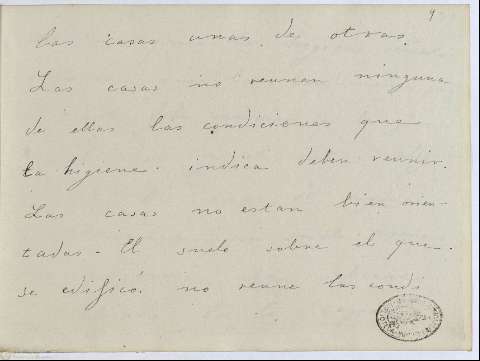 9
las casas unas de otras.
Las casas no reunen ninguna
de ellas las condiciones que
la higiene indica deben reunir.
Las casas no estan bien orien-
tadas - El suelo sobre el que
se edificó no reune las condi